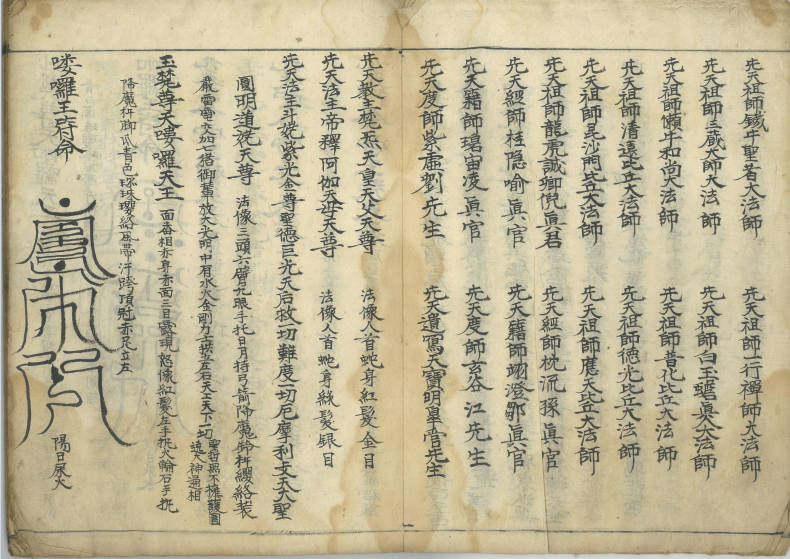 先天祖師鐵牛聖者大法師
先天祖師一行禪師大法師
先天祖師三藏大師大法師
先天祖師白玉蟾真人大法師
先天祖師懶牛和尚大法師
先天祖師普化比丘大法師
先天祖師清遠比丘大法師
先天祖師德光比丘大法師
先天祖師毘沙門比丘大法師
先天祖師應天比丘大法師
先天祖師龍虎誠卿倪真君
先天經師枕流孫真官
先天經師桂隱喻真官
先天籍師翊澄鄒真官
先天籍師碧宙凌真官
先天度師玄谷江先生
先天度師紫虛劉先生
先天遺寫天寶明皐雷先生
先天教主梵炁天皇天父天尊 法像人首蛇身紅髮金目
先天法主帝釋阿伽天母天尊 法像人首蛇身綠髮銀目
先天法主斗姥紫光金尊聖德巨光天后救一切難度一切厄摩利支天大聖
圓明道姥天尊 法像三頭六臂九眼手托日月梏弓箭降魔鈴杵纓絡裝
嚴雷電交加七猪御輦放大光明中有水火金剛力士立左右天上天下一切
玉梵尊天嘍囉天王 面香相赤身赤面三目露現怒像紅髮左手托火輪右手托
降魔杵脚爪青色珠瓔絡風帶汗跨頂冠赤足立左
嘍囉王符命